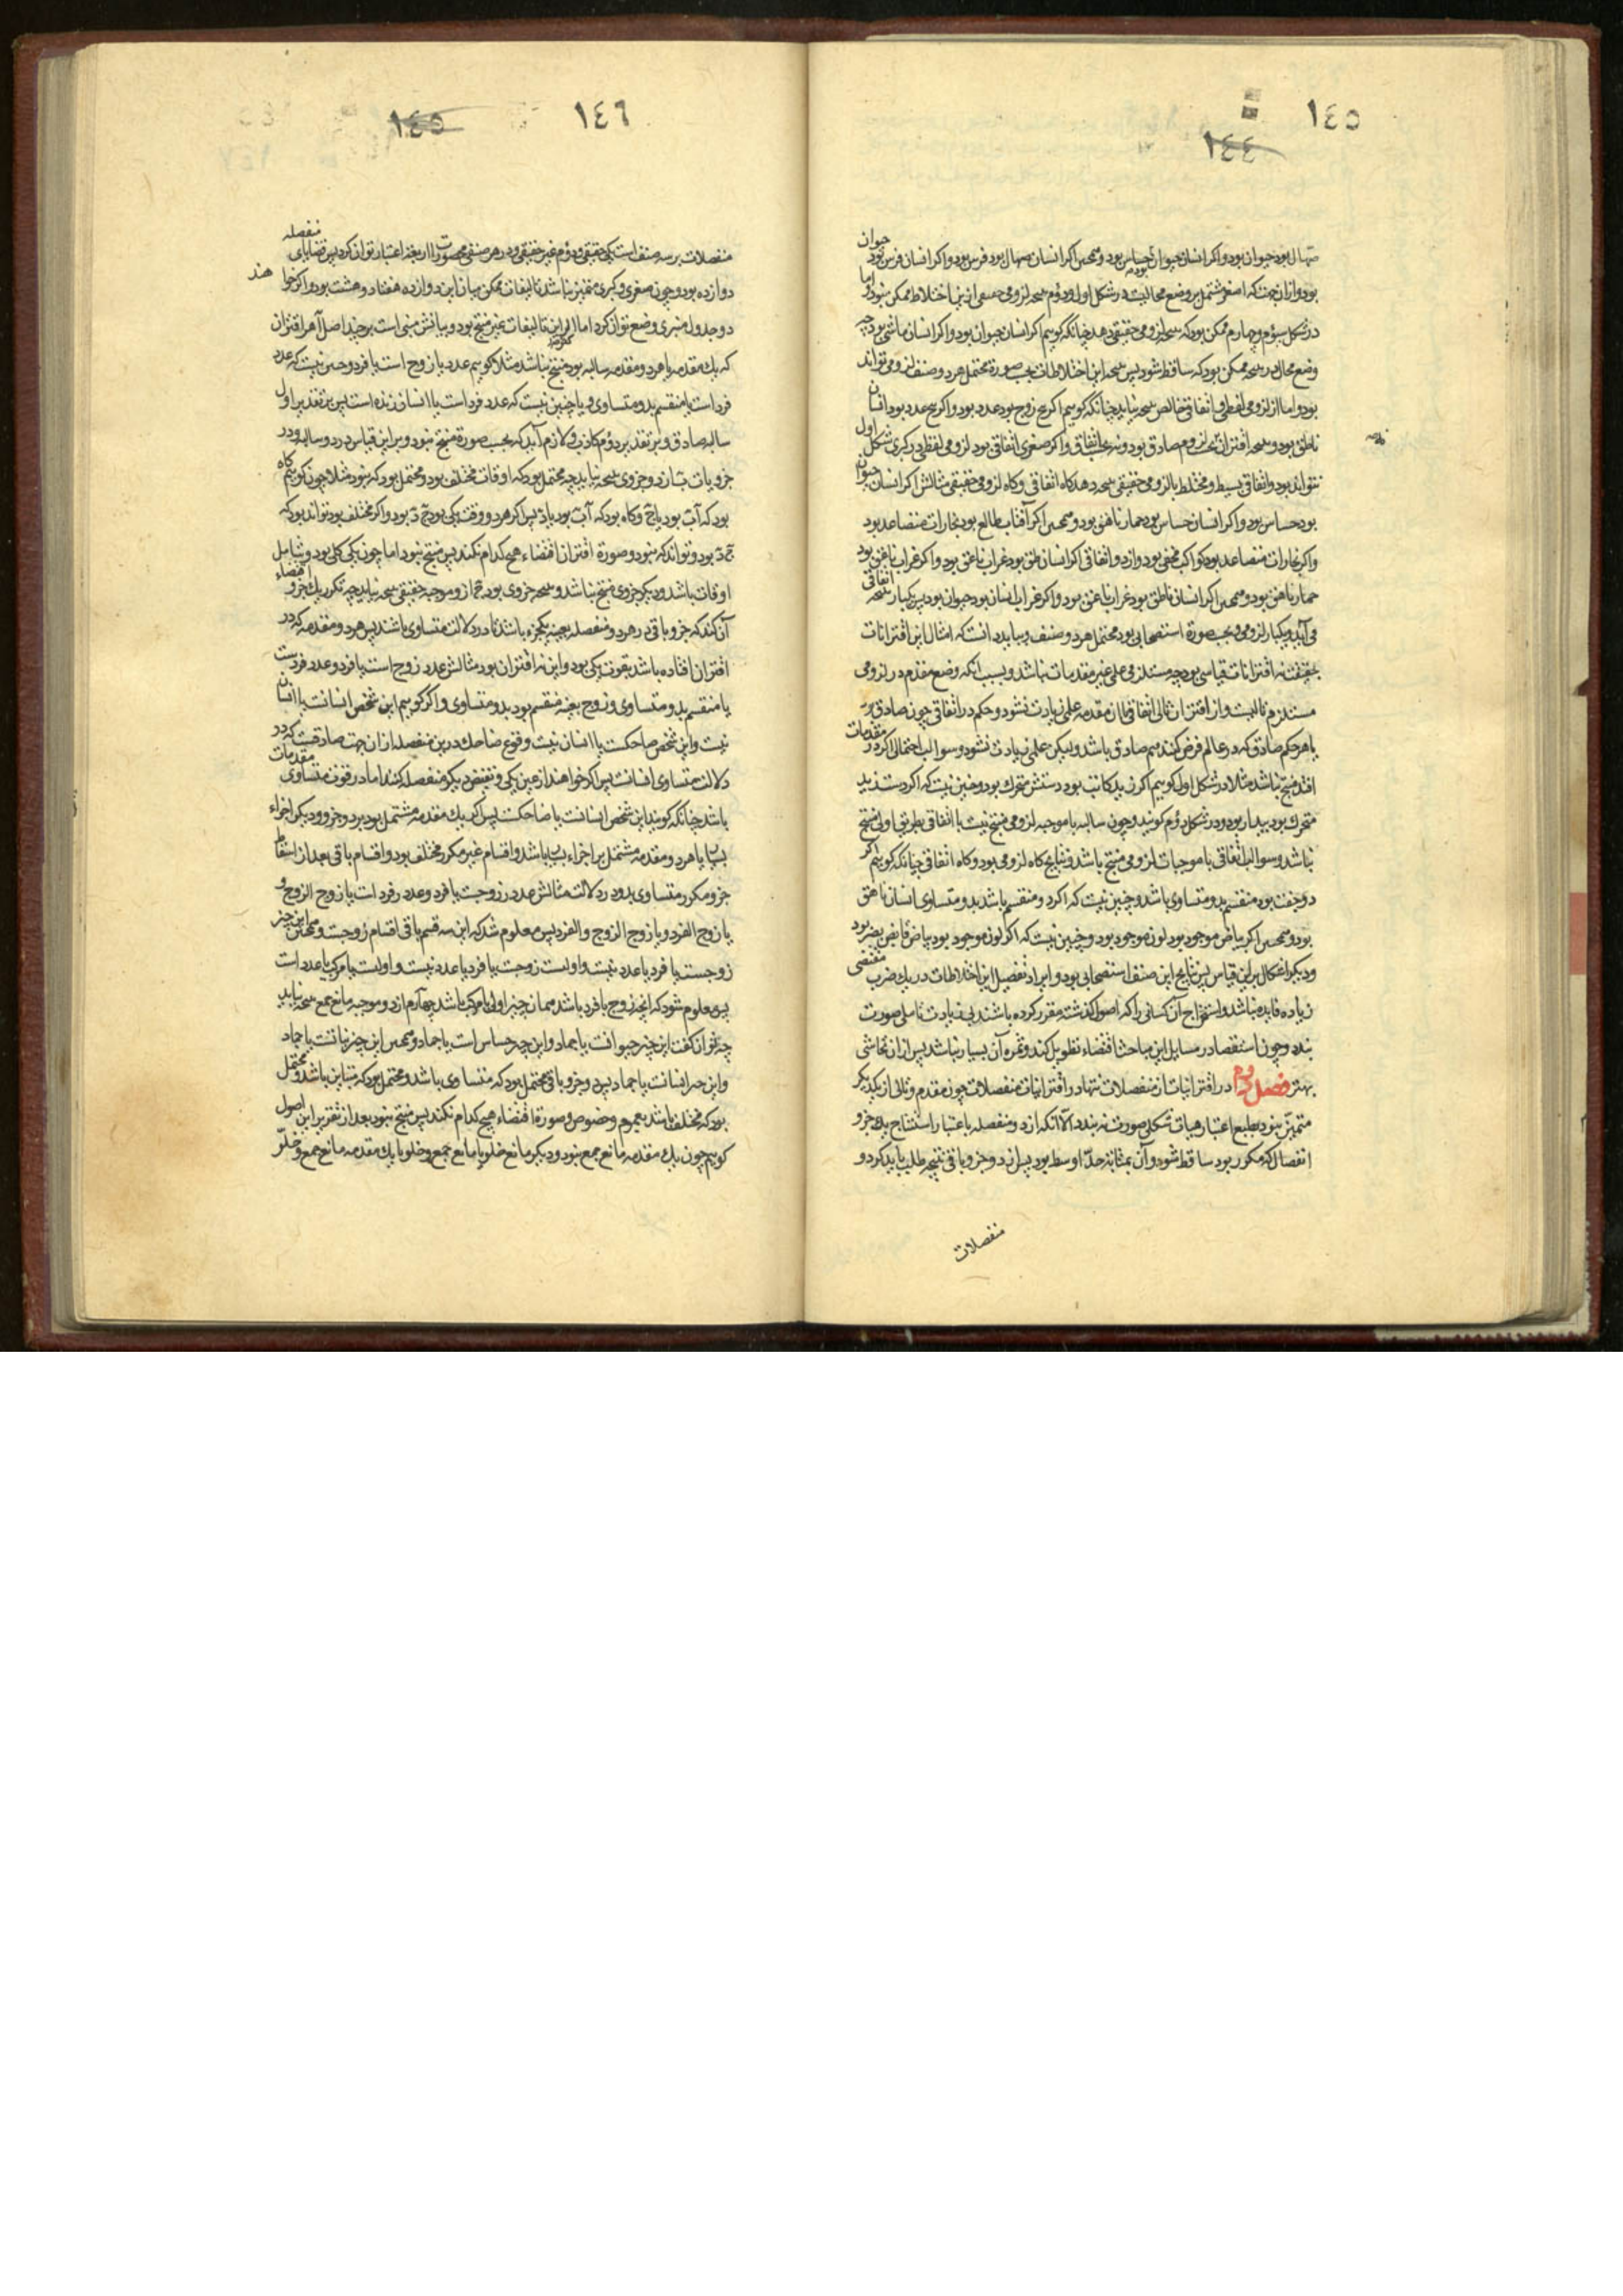 ١٤٥
١٤٤
صهال بود حیوان بود و اکر انسان حیوان بود حساس بود و همچنین اکر انسان صهال بود فرس بود و اکر انسان فرس بود حیوان
بود و ازان جهت که اصغر مشتمل بر وضع محالیست در شکل اول و دوم نتیجه لزومی حقیقی ازین اختلاط ممکن نبود اما
در شکل سیوم و چهارم ممکن بود که نتیجه لزومی حقیقی دهد چنانکه کوییم اکر انسان حیوان بود و اکر انسان ماشی بود چه
وضع محال در نتیجه ممکن بود که ساقط شود پس نتیجه این اختلاطات بحسب صورة محتمل هر دو صنف لزومی تواند
بود و اما از لزومی لفظی و اتفاقی خالص نتیجه نیاید چنانکه کوییم اکر پنج زوج بود عدد بود و اکر پنج عدد بود انسان
ناطق بود و نتیجه اقتران بحسب لزوم صادق بود و نه بحسب اتفاق و اکر صغری اتفاقی بود لزومی لفظی در کبری شکل اول
نتواند بود و اتفاقی بسیط و مختلط با لزومی حقیقی نتیجه دهد کاه اتفاقی و کاه لزومی حقیقی مثالش اکر انسان حیوان
بود حساس بود و اکر انسان حساس بود حمار ناهق بود و همچنین اکر آفتاب طالع بود بخارات متصاعد بود
و اکر بخارات متصاعد بود کواکب مخفی بود و از دو اتفاقی اکر انسان ناطق بود غراب ناعق بود و اکر غراب ناعق بود
حمار ناهق بود و همچنین اکر انسان ناطق بود غراب ناعق بود و اکر غراب انسان بود حیوان بود پس یکبار نتیجه اتفاقی
می آید و یکبار لزومی و بحسب صورة استصحابی بود محتمل هر دو صنف و بباید دانست که امثال این اقترانات
بحقیقت نه اقترانات قیاسی بود چه مستلزم علمی غیر مقدمات نباشد و بسبب انکه وضع مقدم در لزومی
مستلزم تالیست و از اقتران تالی اتفاقی باان مقدمه علمی زیادت نشود و حکم در اتفاقی چون صادق بود
با هر حکم صادق که در عالم فرض کنند هم صادق باشد ولیکن علمی زیادت نشود و سوالب احتمالی اکر در مقدمات
افتد منتج نباشد مثلا در شکل اول کوییم اکر زید کاتب بود دستش متحرک بود و چنین نیست که اکر دست زید
متحرک بود بیدار بود و در شکل دوم کویند و چون سالبه با موجبه لزومی منتج نیست با اتفاقی بطریق اولی منتج
نباشد و سوالب اتفاقی با موجبات لزومی منتج باشد و نتایج کاه لزومی بود و کاه اتفاقی چنانکه کوییم اکر
دو جفت بود منقسم بدو متساوی باشد و چنین نیست که اکر دو منقسم باشد بدو متساوی انسان ناهق
بود و همچنین اکر بیاض موجود بود لون موجود بود و چنین نیست که اکر لون موجود بود بیاض قابض بصر بود
و دیکر اشکال برین قیاس پس نتایج این صنف استصحابی بود و ایراد تفصیل این اختلاطات در یک ضرب مقتضی
زیاده فایده نباشد و استخراج آن کسانی را که اصول کذشته مقرر کرده باشند بی زیادت تاملی صورت
بندد و چون استقصا در مسایل این مباحث اقتضاء تطویل کند و ثمره آن بسیار نباشد پس ازان تحاشی
بهتر فصل دوم در اقترانیات از منفصلات تنها در اقترانیات منفصلات چون مقدم و تالی از یکدیکر
متمیز نبود بطبع اعتبار هیات شکلی صورت نه بندد الا آنکه از دو منفصله باعتبار استنتاج یک جزو
انفصال که مکرر بود ساقط شود و آن بمثابه حد اوسط بود پس از دو جزو باقی نتیجه طلب باید کرد و
منفصلات
١٤٦
١٤٥
منفصلات بر سه صنف است یکی حقیقی و دوم غیر حقیقی و در هر صنفی محصورات اربعه اعتبار توان کرد پس قضایای منفصله
دوازده بود و چون صغری و کبری متمیز نباشد تالیفات ممکن میان این دوازده هفتاد و هشت بود و اکر خواهند
در جدول منبری وضع توان کرد اما اکثر این تالیفات غیر منتج بود و بیانش مبنی است بر چند اصل آ هر اقتران
که یک مقدمه یا هر دو مقدمه سالبه بود منتج نباشد مثلا کوییم عدد یا زوج است یا فرد و چنین نیست که عدد
فرد است یا منقسم بدو متساوی و یا چنین نیست که عدد فرد است یا انسان زنده است پس بر تقدیر اول
سالبه صادق و بر تقدیر دوم کاذب لازم آید که بحسب صورة منتج نبود و برین قیاس در دو سالبه و در
جزویات ب از دو جزوی نتیجه نیاید چه محتمل بود که اوقات مختلف بود و محتمل بود که نبود مثلا چون کوییم کاه
بود که آب بود یا ج و کاه بود که آب بود یا د پس اکر هر دو وقت یکی بود ج د بود و اکر مختلف بود تواند بود که
ج د بود و تواند که نبود و صورة اقتران اقتضاء هیچ کدام نکند پس منتج نبود اما چون یکی کلی بود و شامل
اوقات باشد و دیکر جزوی منتج باشد و نتیجه جزوی بود ج از دو موجبه حقیقی نتیجه نیاید چه تکرر یک جزو اقتضاء
آن کند که جزو باقی در هر دو منفصله بعینه یکجزء باشد تا در دلالت متساوی باشند پس هر دو مقدمه که در
اقتران افتاده باشد بقوت یکی بود و این نه اقتران بود مثالش عدد زوج است یا فرد و عدد فردست
یا منقسم بدو متساوی و زوج بعینه منقسم بود بدو متساوی و اکر کوییم این شخص انسانست یا انسان
نیست و این شخص ضاحکست یا انسان نیست وقوع ضاحک درین منفصله ازان جهت صادقست که در
دلالت متساوی انسانست پس اکر خواهند از عین یکی و نقیض دیکر منفصله کنند اما در قوت مقدمات متساوی
باشد چنانکه کویند این شخص انسانست یا ضاحکست پس اکر یک مقدمه مشتمل بود بر دو جزو و دیکر بر اجزاء
بسیار یا هر دو مقدمه مشتمل بر اجزاء بسیار باشد و اقسام غیر مکرر مختلف بود و اقسام باقی بعد از اسقاط
جزو مکرر متساوی بود در دلالت مثالش عدد زوجست یا فرد و عدد فرد است یا زوج الزوج و
یا زوج الفرد و یا زوج الزوج و الفرد پس معلوم شد که این سه قسم باقی اقسام زوجست و همچنین این چیز
زوجست یا فرد یا عدد نیست و اولست یا زوجست یا فرد یا عدد نیست و اولست یا مرکب یا عدد است
پس معلوم شود که انچه زوج یا فرد باشد همان چیز اولی یا مرکب باشد چهارم از دو موجبه مانع جمع نتیجه نیاید
چه توان کفت این چیز حیوانست یا جماد و این چیز حساس است یا جماد و همچنین این چیز نباتست یا جماد
و این چیز انسانست یا جماد پس دو جزو باقی محتمل بود که متساوی باشد و محتمل بود که متباین باشد و محتمل
بود که مختلف باشد بعموم و خصوص و صورة اقتضاء هیچ کدام نکند پس منتج نبود بعد از تقریر این اصول
کوییم چون یک مقدمه مانع جمع بود و دیکر مانع خلو یا مانع جمع و خلو یا یک مقدمه مانع جمع و خلو